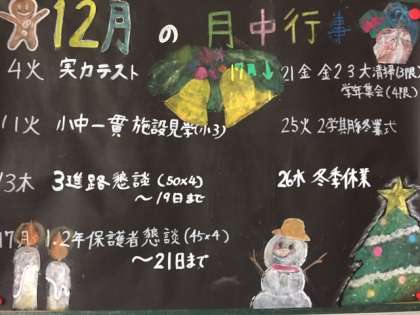 12月の月中行事
4火 実力テスト
11火 小中一貫施設見学(小3)
13木 3進路懇談(50×4)
～19日まで
17月 1.2年保護者懇談(45×4)
～21日まで
17月↓
21金 金23大清掃(3限)
学年集会(4限)
25火 2学期終業式
26水 冬季休業